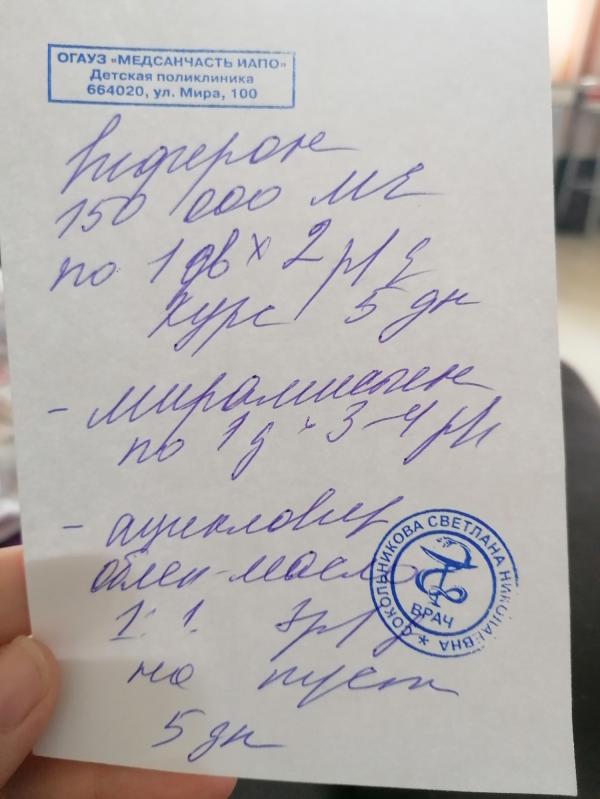 ОГАУЗ «МЕДСАНЧАСТЬ ИАПО»
Детская поликлиника
664020, ул. Мира, 100
Виферон
150 000 МЕ
по 1 св х 2 р/д
курс 5 дн
- мирамистин
по 1д х 3-4 р/д
- ацикловир
облеп-масло
1:1. 3р/д
на
5 дн
СОКОЛЬНИКОВА СВЕТЛАНА НИКОЛАЕВНА *
ВРАЧ